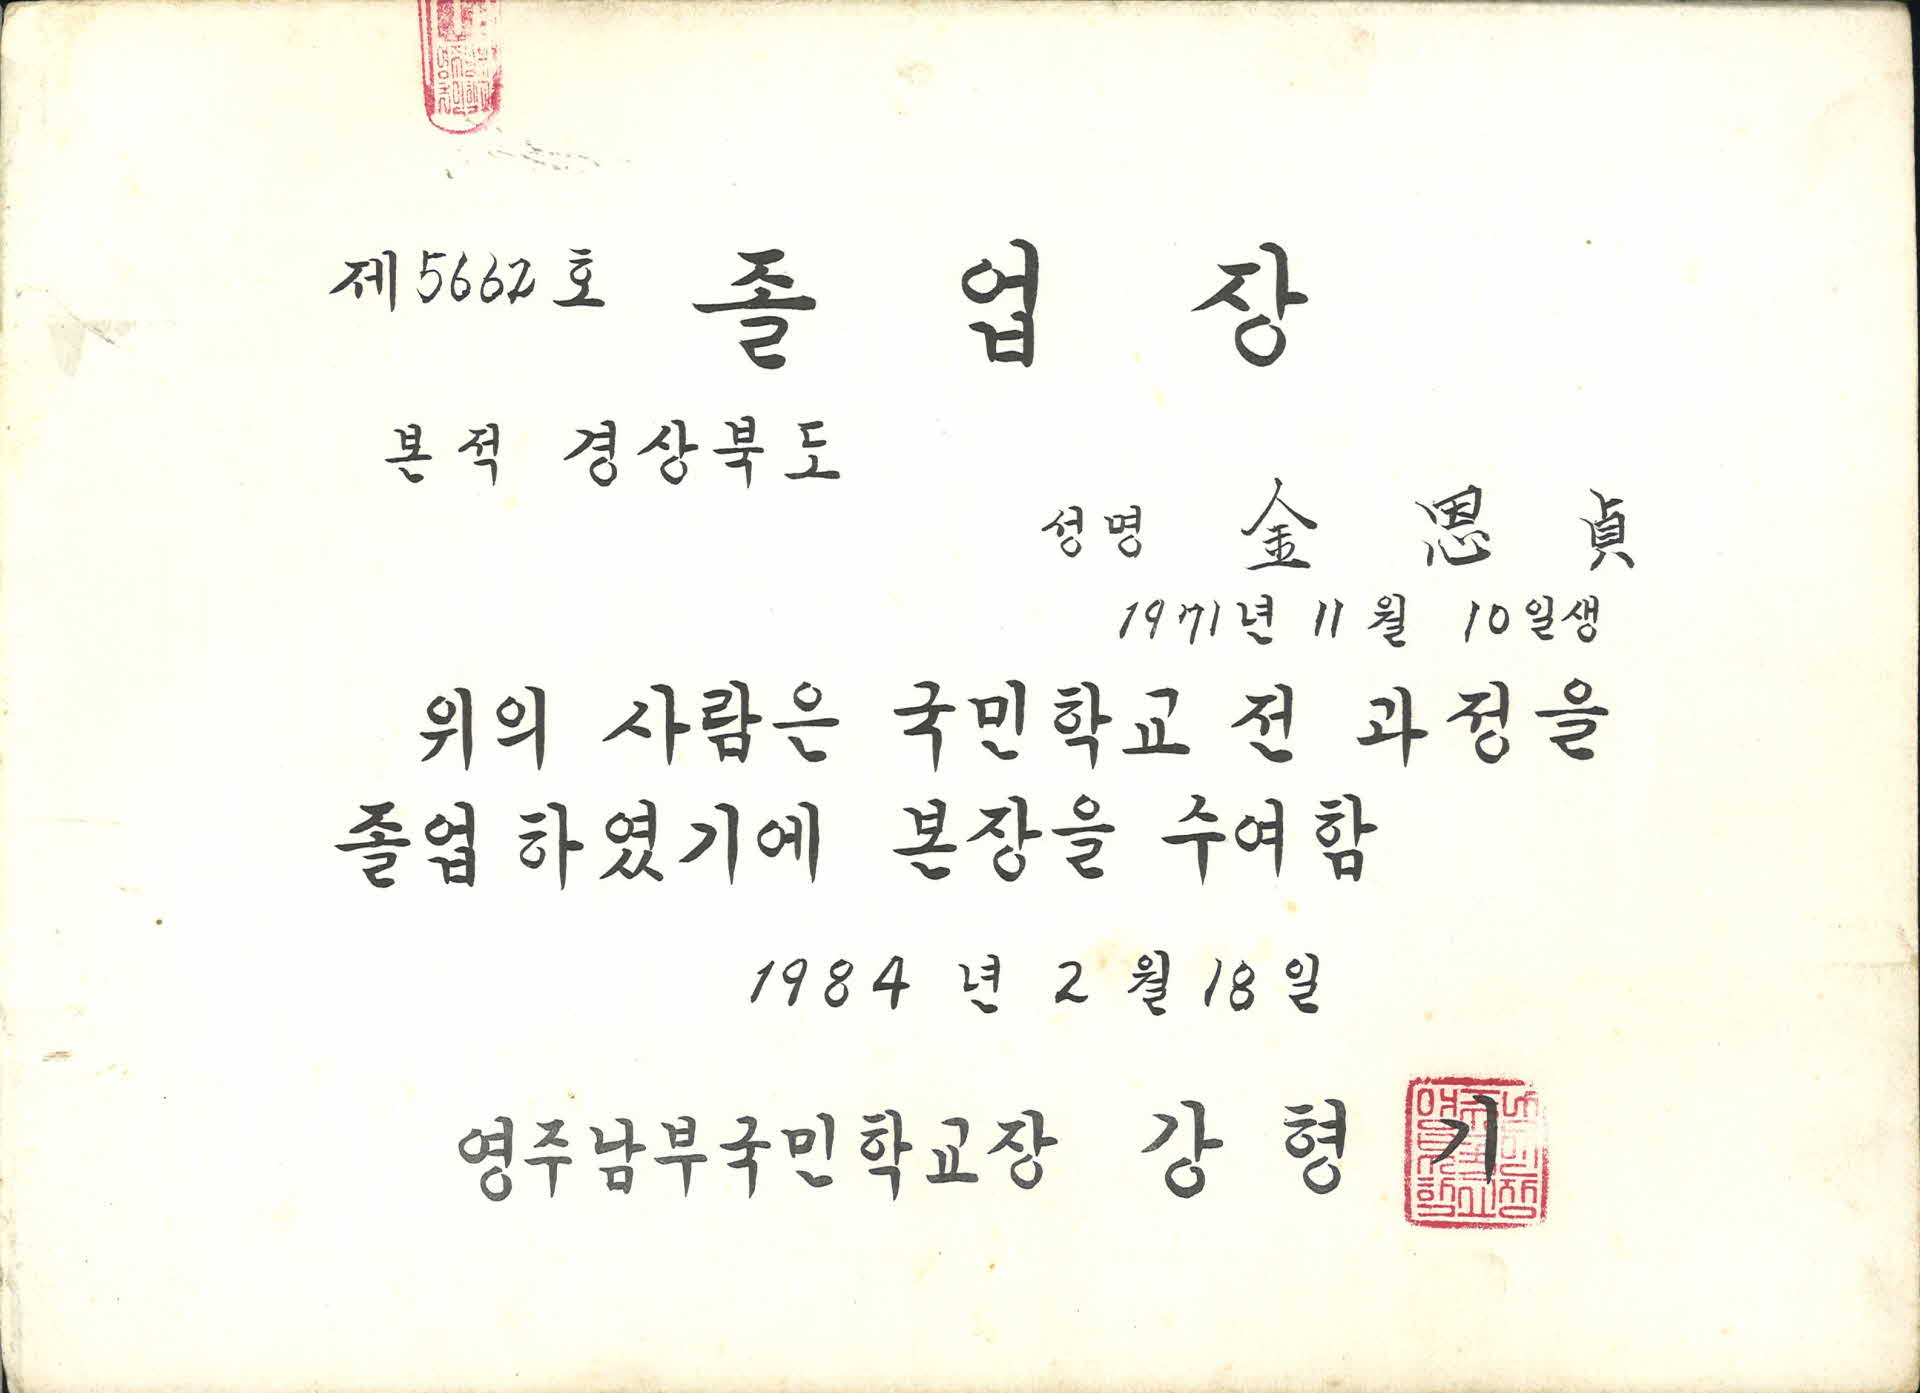 제5662호 졸 업 장
본적 경상북도
성명 金 恩 貞
1971년 11월 10일생
위의 사람은 국민학교 전 과정을
졸업하였기에 본장을 수여함
1984 년 2 월 18 일
영주남부국민학교장 강 형 기